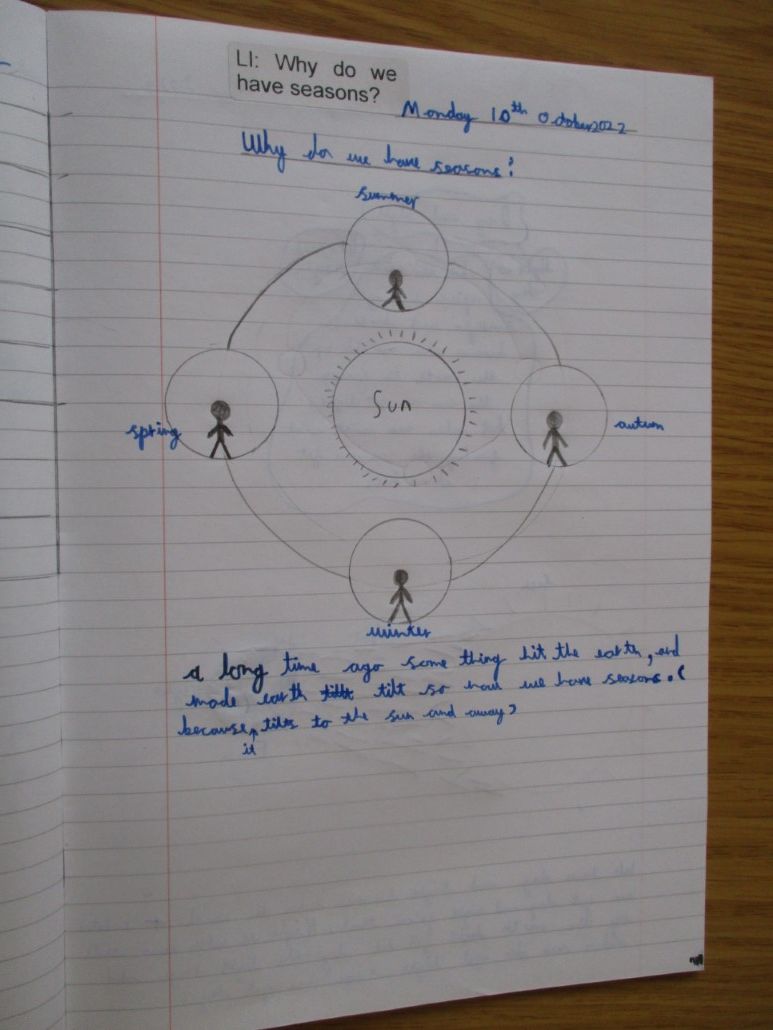 LI: Why do we
have seasons?
Monday 10th October 2022
Why do we have seasons?
summer
Sun
spring
autum
winter
a long time ago some thing hit the earth, and
made earth tilt so now we have seasons. (
because it tilts to the sun and away)